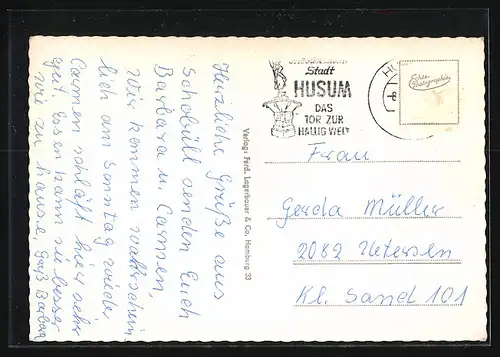 Herzliche Grüße aus
Schobüll senden Euch
Barbara u. Carmen,
Wir kommen wahrschein
lich am Sonntag wieder
Carmen schläft hier sehr
gut. Essen kann sie besser
wie zu hause. Gruß Barbara
Verlag: Ferd. Lagerbauer & Co. Hamburg 33
Stadt
HUSUM
DAS
TOR ZUR
HALLIG WELT
Echte
Photographie
Frau
Gerda Müller
2082 Uetersen
Kl. Sand 101